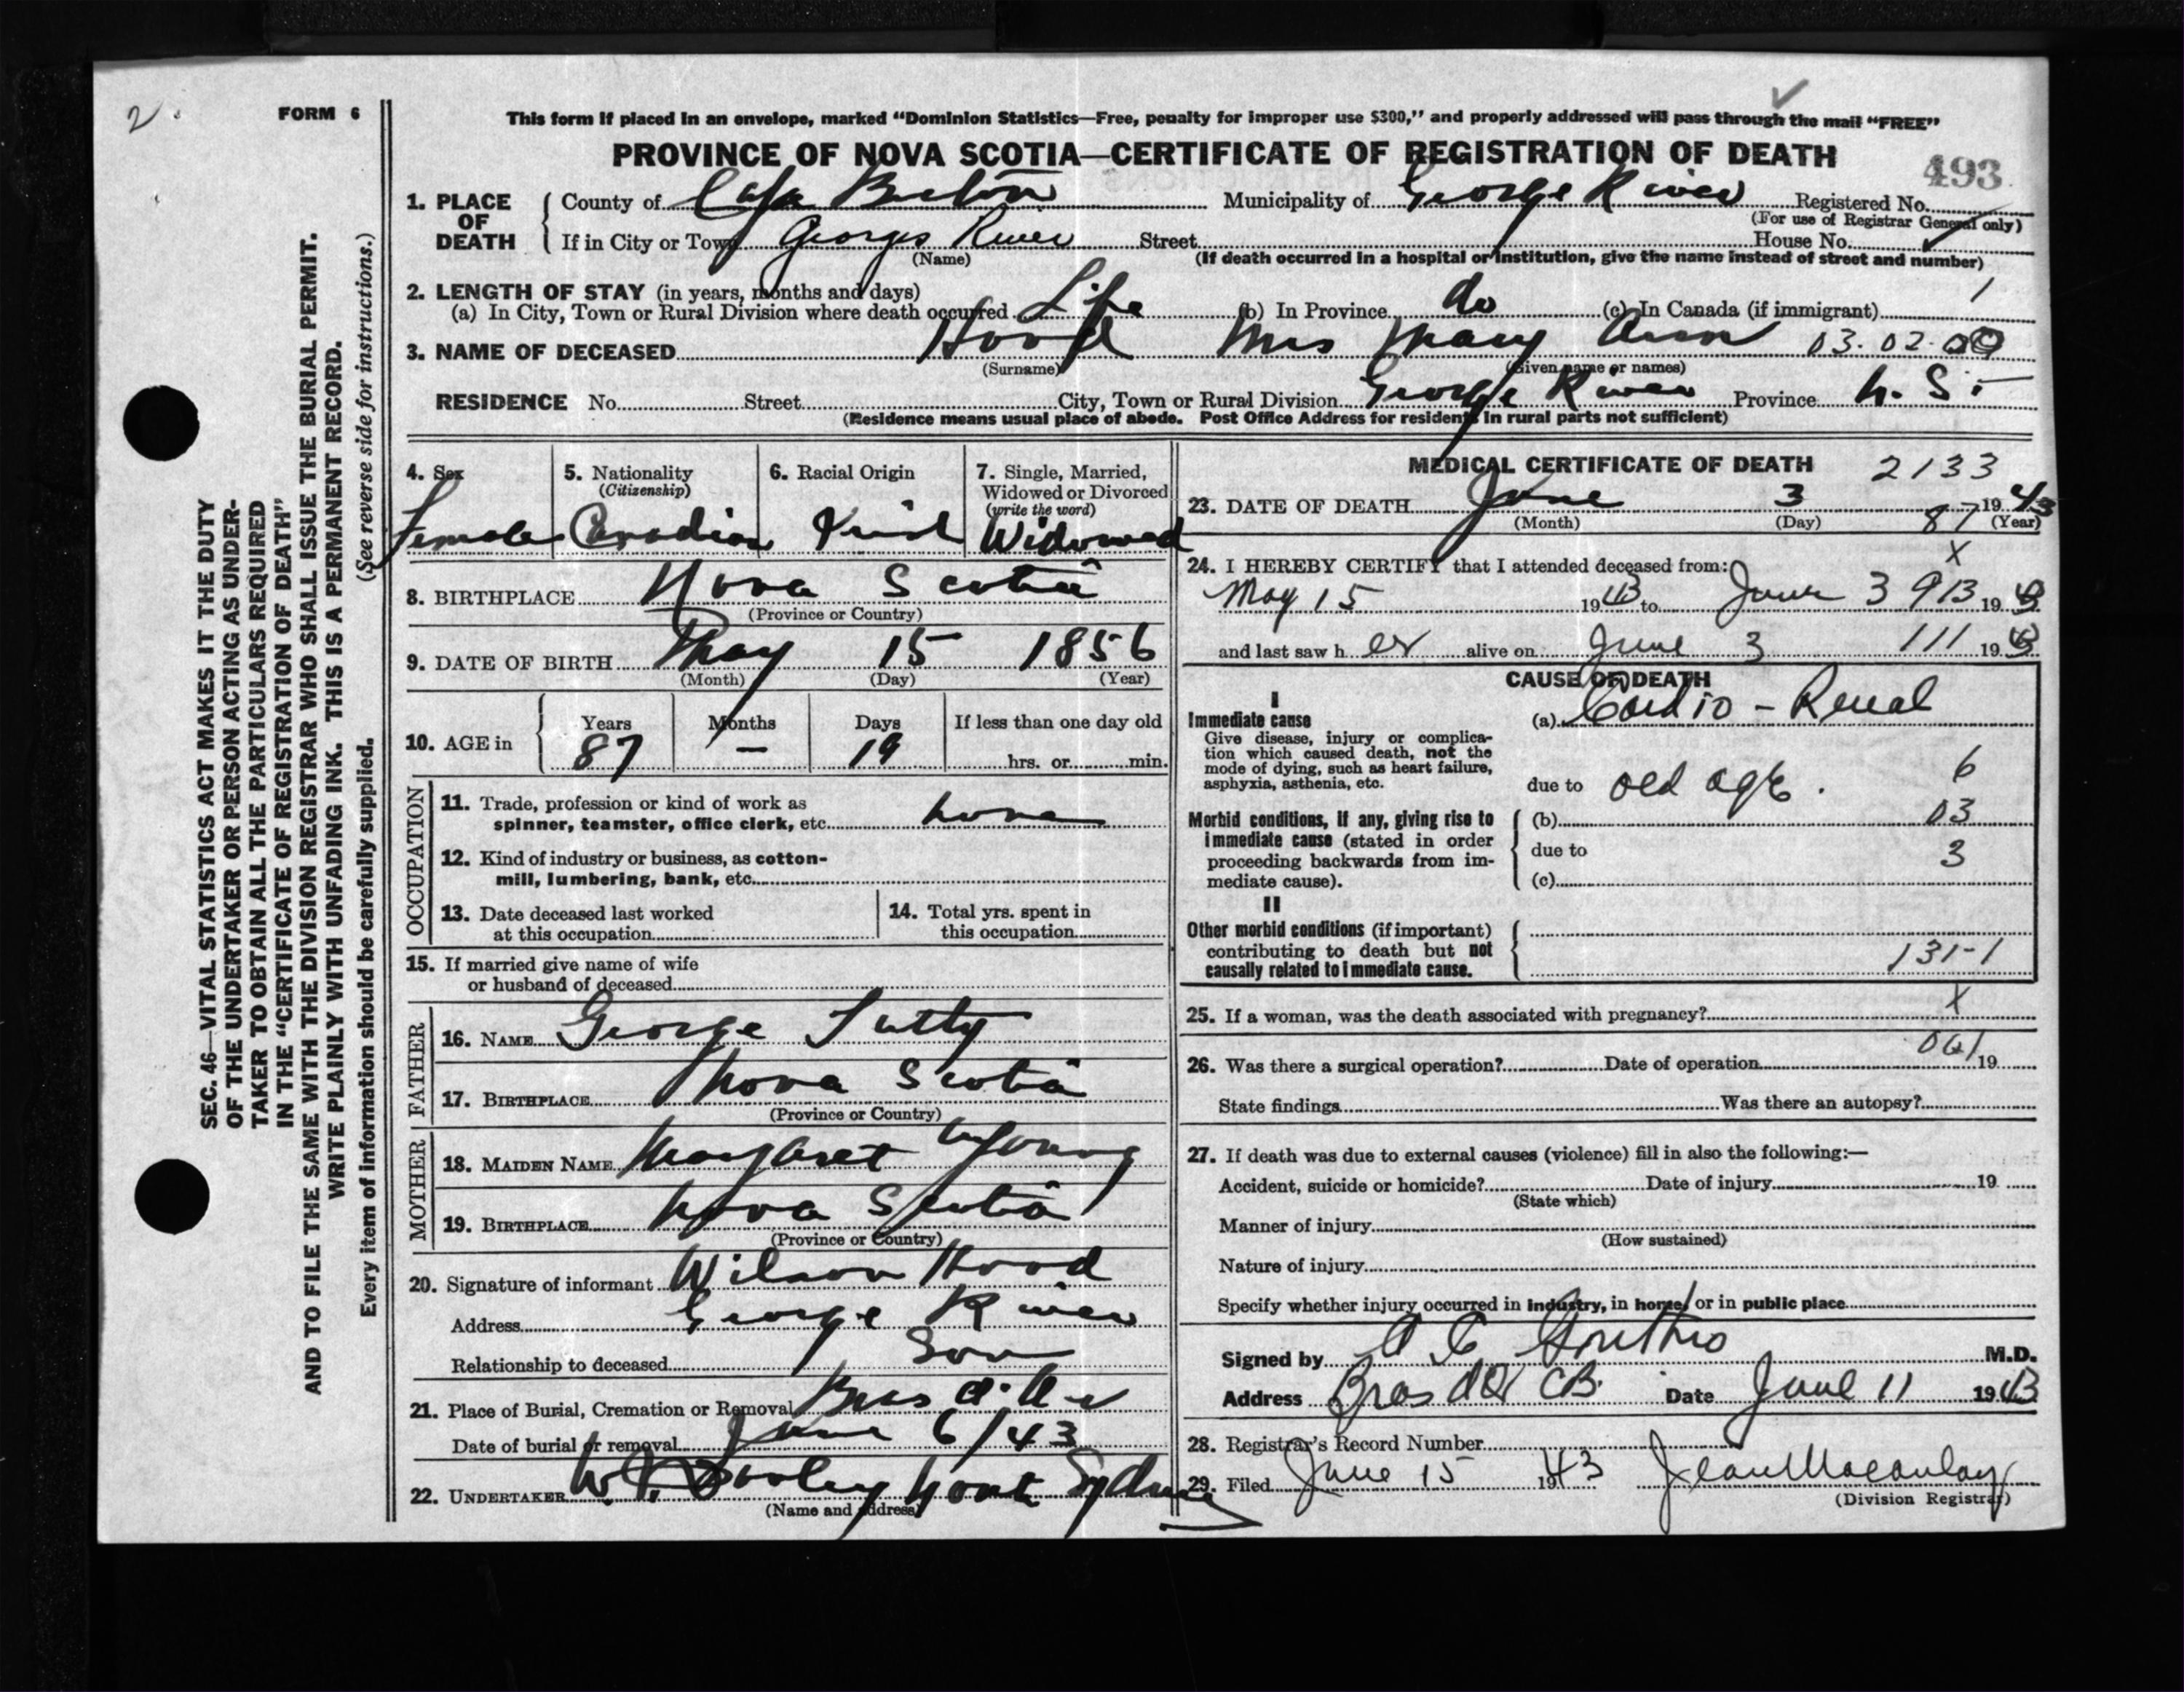 2.
FORM 6
This form if placed in an envelope, marked "Dominion Statistics—Free, penalty for improper use $300," and properly addressed will pass through the mail "FREE"
PROVINCE OF NOVA SCOTIA—CERTIFICATE OF REGISTRATION OF DEATH
493
1. PLACE OF DEATH
County of Cape Breton Municipality of George River Registered No.
(For use of Registrar General only)
If in City or Town Georges River Street House No.
(Name) (If death occurred in a hospital or institution, give the name instead of street and number)
2. LENGTH OF STAY (in years, months and days)
(a) In City, Town or Rural Division where death occurred Life (b) In Province do (c) In Canada (if immigrant) 1
3. NAME OF DECEASED Hood Mrs Mary Ann 03.02.00
(Surname) (Given name or names)
RESIDENCE No. Street City, Town or Rural Division George River Province N. S.
(Residence means usual place of abode. Post Office Address for residents in rural parts not sufficient)
4. Sex Female
5. Nationality (Citizenship) Canadian
6. Racial Origin Irish
7. Single, Married, Widowed or Divorced (write the word) Widowed
8. BIRTHPLACE Nova Scotia
(Province or Country)
9. DATE OF BIRTH May 15 1856
(Month) (Day) (Year)
10. AGE in Years 87 Months — Days 19 If less than one day old hrs. or min.
OCCUPATION
11. Trade, profession or kind of work as
spinner, teamster, office clerk, etc. home
12. Kind of industry or business, as cotton-
mill, lumbering, bank, etc.
13. Date deceased last worked
at this occupation
14. Total yrs. spent in
this occupation
15. If married give name of wife
or husband of deceased
FATHER
16. NAME George Tutty
17. BIRTHPLACE Nova Scotia
(Province or Country)
MOTHER
18. MAIDEN NAME Margaret Young
19. BIRTHPLACE Nova Scotia
(Province or Country)
20. Signature of informant Wilson Hood
Address George River
Relationship to deceased Son
21. Place of Burial, Cremation or Removal Bras d'Or
Date of burial or removal June 6/43
22. UNDERTAKER W. Dooley North Sydney
(Name and address)
MEDICAL CERTIFICATE OF DEATH 2133
23. DATE OF DEATH June 3 1943
(Month) (Day) (Year)
87
24. I HEREBY CERTIFY that I attended deceased from: X
May 15 1943 to June 3 913 1943
and last saw h er alive on June 3 111 1943
CAUSE OF DEATH
I
Immediate cause
Give disease, injury or complica-
tion which caused death, not the
mode of dying, such as heart failure,
asphyxia, asthenia, etc.
(a) Cardio - Renal
due to old age. 6
Morbid conditions, if any, giving rise to
immediate cause (stated in order
proceeding backwards from im-
mediate cause).
(b) 03
due to 3
(c)
II
Other morbid conditions (if important)
contributing to death but not
causally related to immediate cause.
131-1
25. If a woman, was the death associated with pregnancy? X
26. Was there a surgical operation? Date of operation 061 19
State findings Was there an autopsy?
27. If death was due to external causes (violence) fill in also the following:—
Accident, suicide or homicide? Date of injury 19
(State which)
Manner of injury
(How sustained)
Nature of injury
Specify whether injury occurred in industry, in home, or in public place
Signed by M.D.
Address Bras d'Or CB. Date June 11 1943
28. Registrar's Record Number
29. Filed June 15 1943 Jean Macaulay
(Division Registrar)
SEC. 46—VITAL STATISTICS ACT MAKES IT THE DUTY
OF THE UNDERTAKER OR PERSON ACTING AS UNDER-
TAKER TO OBTAIN ALL THE PARTICULARS REQUIRED
IN THE "CERTIFICATE OF REGISTRATION OF DEATH"
AND TO FILE THE SAME WITH THE DIVISION REGISTRAR WHO SHALL ISSUE THE BURIAL PERMIT.
WRITE PLAINLY WITH UNFADING INK. THIS IS A PERMANENT RECORD.
Every item of information should be carefully supplied. (See reverse side for instructions.)